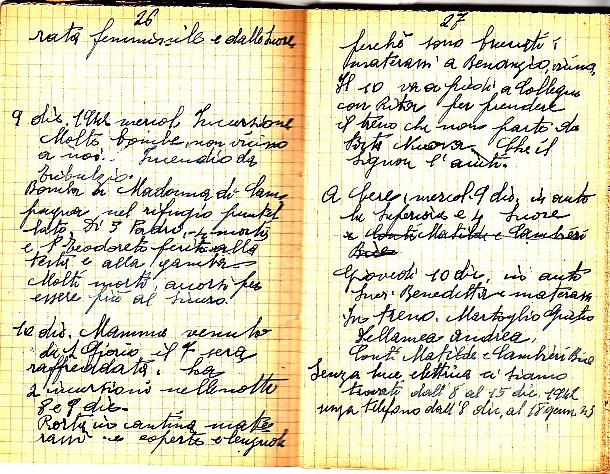 26
rata femminile e dalle Suore
9 dic. 1942 mercol. Incursione
Molte bombe, non vicino
a noi. Incendio da
Bomba a Madonna di Cam
pagna, nel rifugio puntel
lato, Di 5 Padri, 4 morti
e P. Teodoreto ferito alla
testa e alla gamba
Molti morti, accorsi per
essere più al sicuro.
10 dic. Mamma venuta
di S Giorio il 7 sera
raffreddata, ha
2 incursioni nelle notti
8 e 9 dic.
Porta in cantina mate
rassi e coperte e lenzuola
27
perchè sono bruciati i
materassi a Benangio, vicino,
Il 10 va a piedi a Collegno
con Rita per prendere
il treno che non parte da
Porta Nuova. Che il
Signor l'aiuti.
A Cere, mercol. 9 dic, in auto
la Superiora e 4 Suore
e Conti Matilde e Cambieri
Bice
Giovedì 10 dic. in auto
Suor Benedetta e materassi
In treno. Martoglio Giusto
Dellamea Andrea
Conti Matilde e Cambieri Bice
Senza luce elettrica ci siamo
trovati dall'8 al 15 dic. 1942
senza telefono dall'8 dic. al 18 genn 43